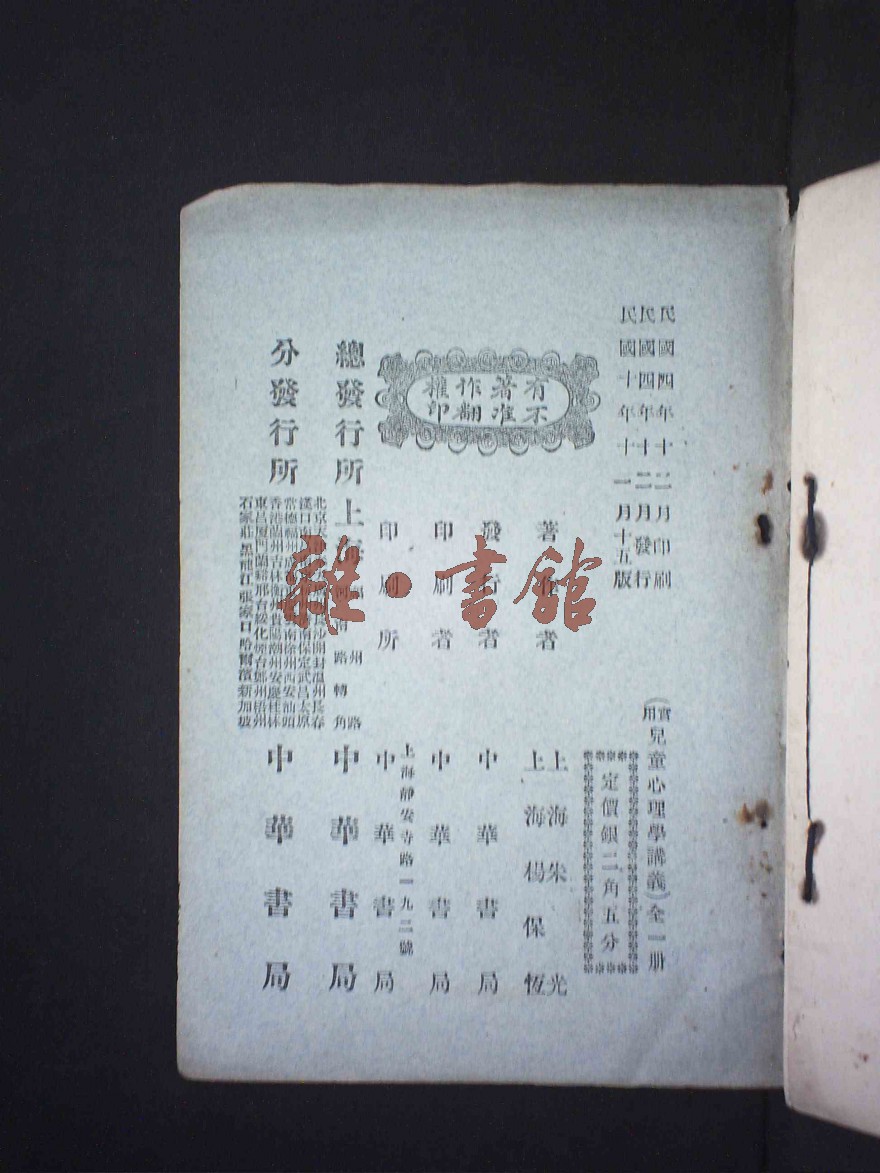 民國四年十二月印刷
民國四年十二月發行
民國十年十一月十五版
(實用兒童心理學講義)全一册
定價銀二角五分
有著作權
不准翻印
著作者
上海朱 光
上海楊保恆
發行者 中華書局
印刷者 中華書局
印刷所
上海靜安寺路一九二號
中華書局
總發行所 上海
河南路轉角
州路
中華書局
分發行所
北京
沙開封溫州長春
漢口南
南保定武昌太原
常德福州
雲南徐州西安汕頭
香港蘭州吉林衡州貴陽潮州安慶桂林
東昌厦門蘭谿邢台綏化煙台鄭州梧州
石家莊黑龍江張家口哈爾濱新加坡
中華書局
雜·書館